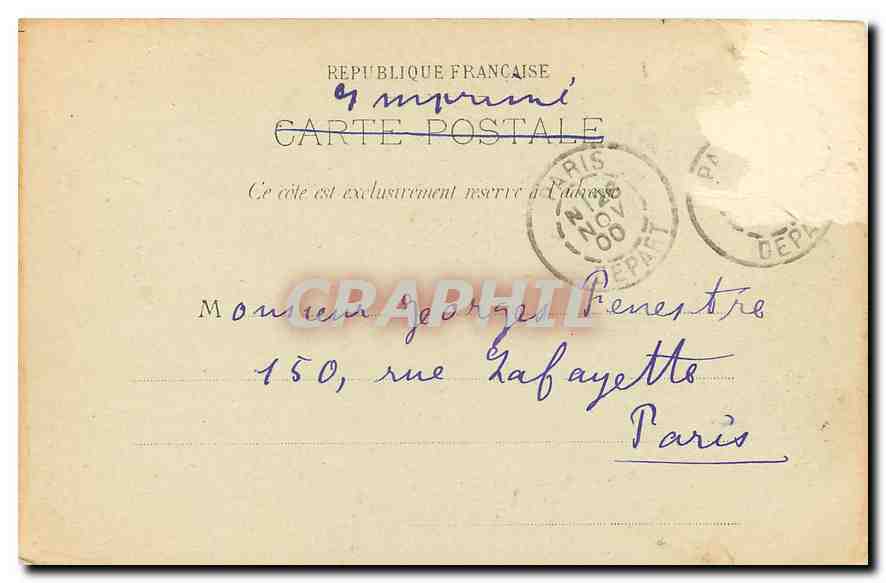 REPUBLIQUE FRANÇAISE
Imprimé
CARTE POSTALE
Ce côté est exclusivement réservé à l'adresse
PARIS
NOV
00
DEPART
PA
DEPA
CRAPHIL
Monsieur Georges Fenestre
150, rue Lafayette
Paris